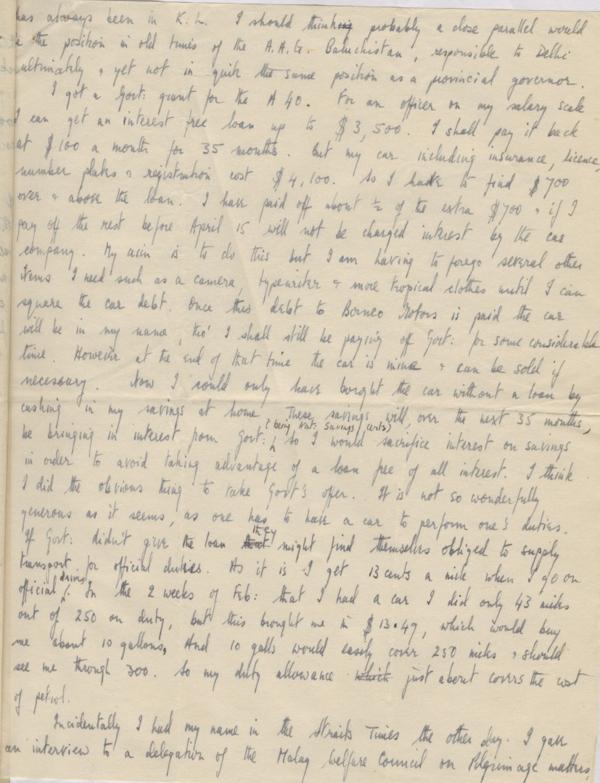 has always been in K.L. I should think probably a close parallel would
the position in old times of the A.A.G. Baluchistan, responsible to Delhi
ultimately & yet not in quite the same position as a provincial governor.
I got a Govt: grant for the A 40. For an officer on my salary scale
I can get an interest free loan up to $3,500. I shall pay it back
at $100 a month for 35 months. But my car including insurance, licence,
number plates & registration cost $4,100. So I had to find $700
over & above the loan. I have paid off about ½ of the extra $700 & if I
pay off the rest before April 15 will not be charged interest by the car
company. My aim is to do this but I am having to forego several other
items I need such as a camera, typewriter & more tropical clothes until I can
square the car debt. Once this debt to Borneo Motors is paid the car
will be in my name, tho' I shall still be paying of Govt: for some considerable
time. However at the end of that time the car is mine & can be sold if
necessary. Now I could only have bought the car without a loan by
cashing in my savings at home. These savings will, over the next 35 months,
be bringing in interest from Govt: (being Nat: Savings Certs) so I would sacrifice interest on savings
in order to avoid taking advantage of a loan free of all interest. I think
I did the obvious thing to take Govt's offer. It is not so wonderfully
generous as it seems, as one has to have a car to perform one's duties.
If Govt: didn't give the loan they might find themselves obliged to supply
transport for official duties. As it is I get 13 cents a mile when I go on
official driving. In the 2 weeks of Feb: that I had a car I did only 43 miles
out of 250 on duty, but this brought me in $13.47, which would buy
me about 10 gallons. And 10 galls would easily cover 250 miles & should
see me through 300. So my duty allowance which just about covers the cost
of petrol.
Incidentally I had my name in the Straits Times the other day. I gave
an interview to a delegation of the Malay Welfare Council on Pilgrimage matters,